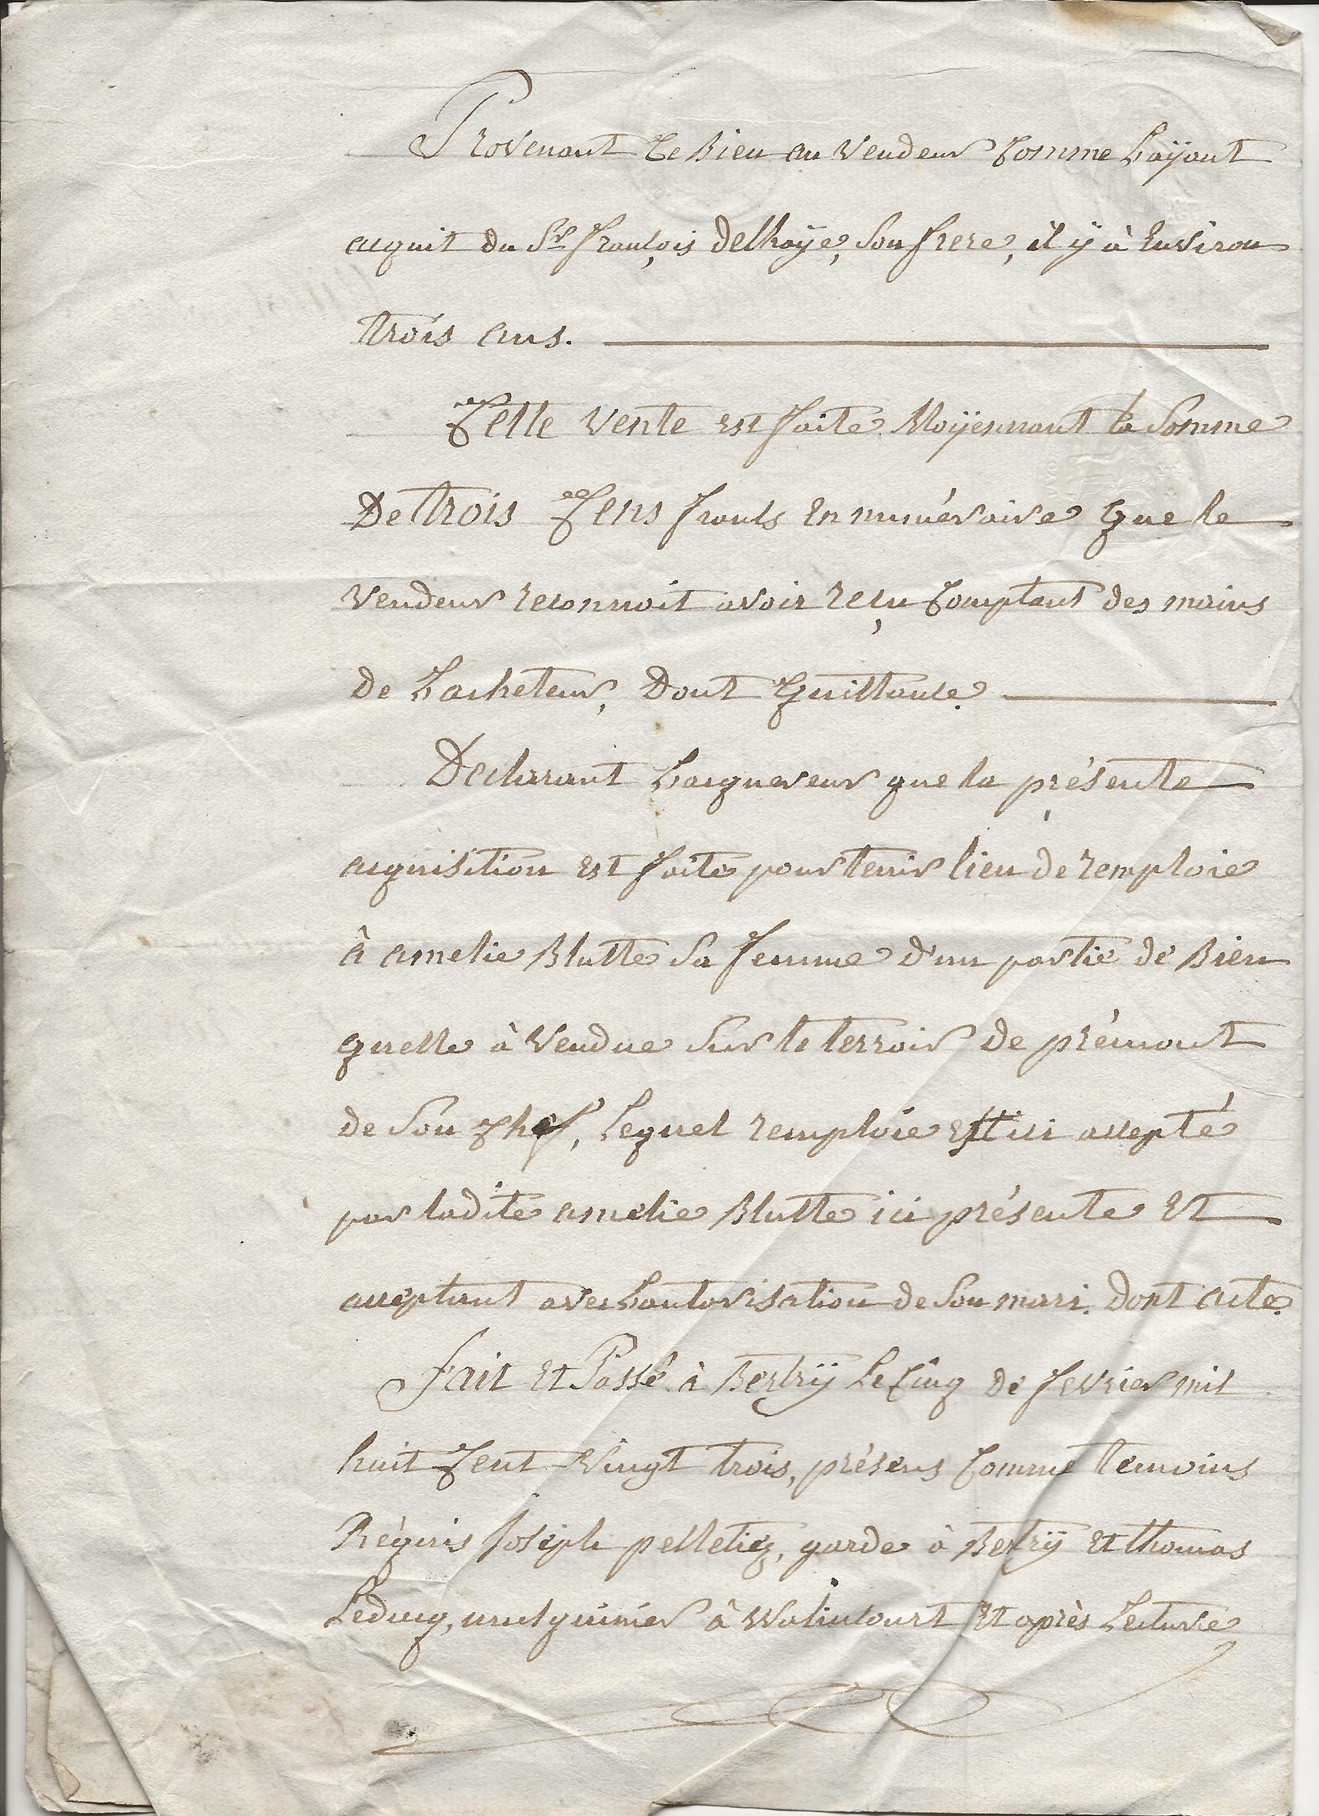 Provenant Ce Bien au Vendeur Comme Layant
acquit du Sr. françois Delhaÿe, Son frere, il ÿ à Environ
trois ans.
Cette Vente est faite Moÿennant la Somme
De trois Cens francs En numéraire Que le
Vendeur reconnoit avoir reçu Comptant des mains
de Lacheteur, Dont Quittance.
Declarant Lacquereur que la présente
acquisition est faite pour tenir lieu de remploie
à amelie Blutte Sa femme d'un partie de Bien
quelle à Vendue Sur le terroir de prémont
de Son Chef, Lequel remploie est ici accepté
par ladite amelie Blutte ici présente Et
acceptant avec Lautorisation de Son mari. Dont acte.
Fait Et Passé à Bertrÿ Le Cinq de fevrier mil
huit Cent Vingt trois, présens Comme temoins
Joseph pelletiez, garde à Bertrÿ Et thomas
Leducq, mulquinier à Walincourt Et après Lecture